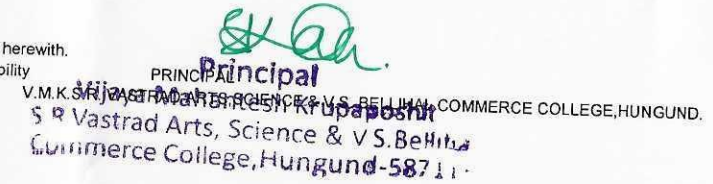 herewith.
bility
PRINCIPAL
Principal
V.M.K.S.R. VASTRAD ARTS SCIENCE & V.S. BELLIHAL COMMERCE COLLEGE,HUNGUND.
Vijaya Mahantesh Krupaposhit
S R Vastrad Arts, Science & V S.Bellihal
Commerce College,Hungund-587